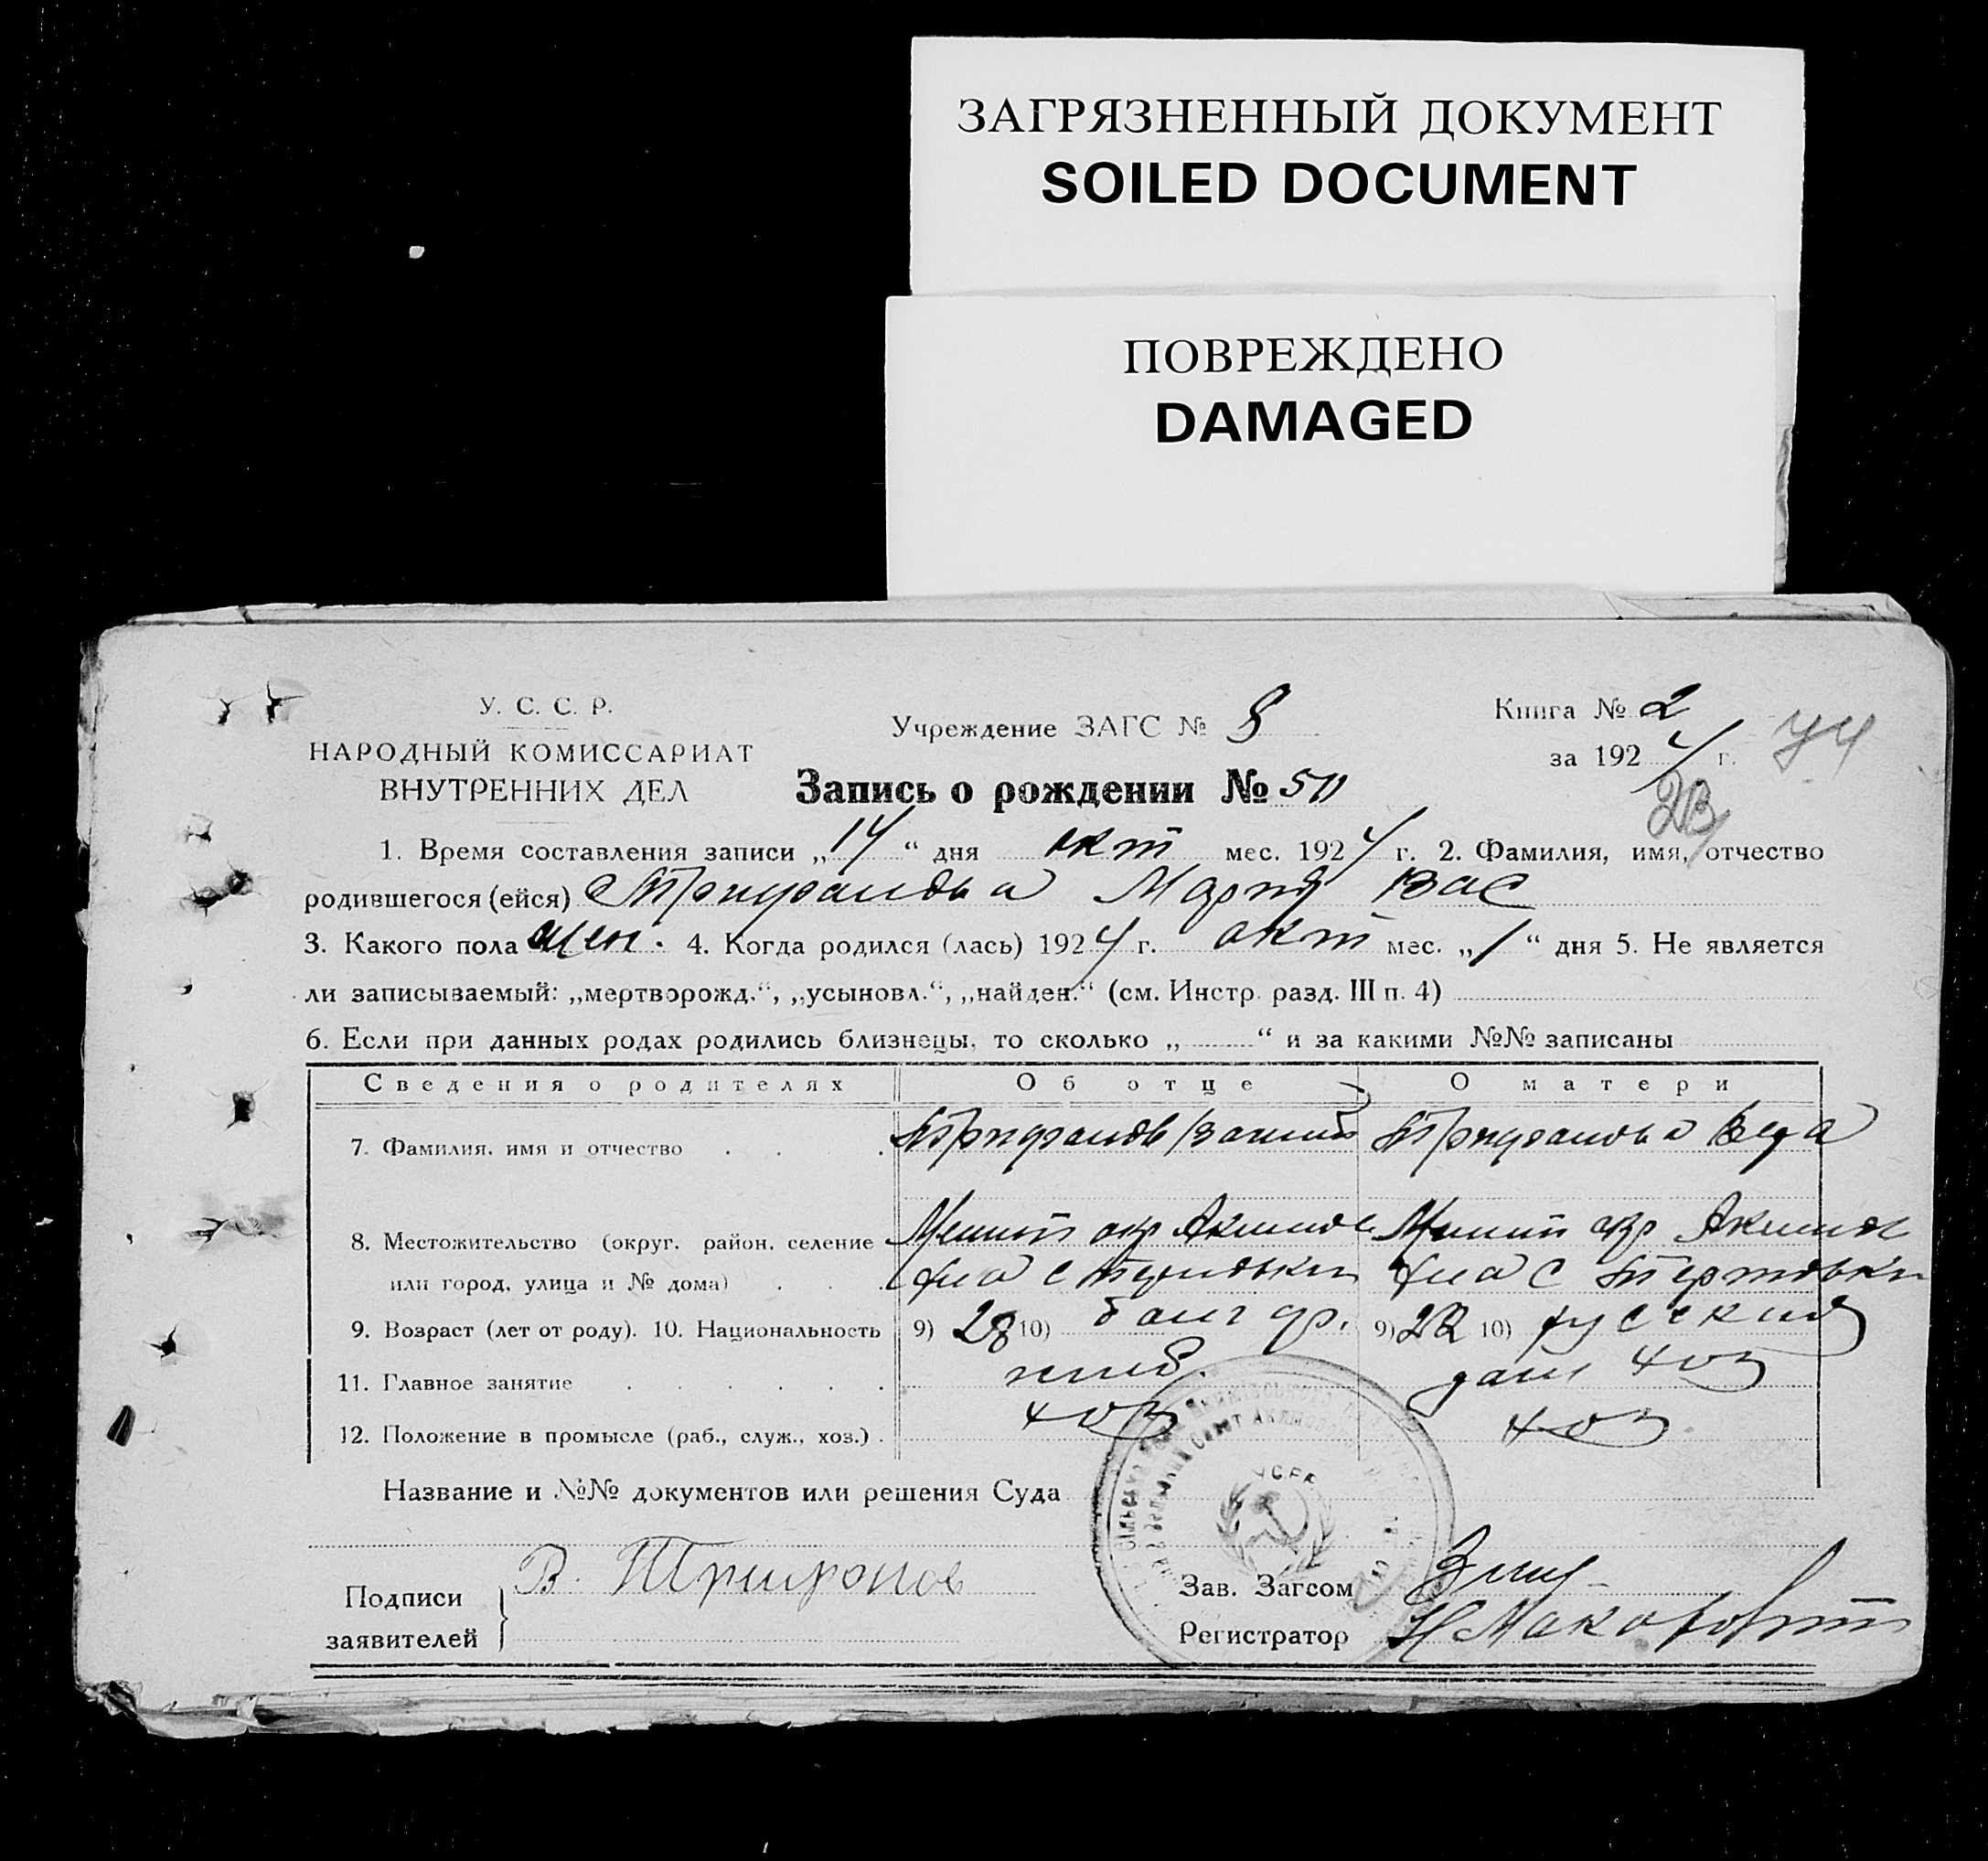 ЗАГРЯЗНЕННЫЙ ДОКУМЕНТ
SOILED DOCUMENT
ПОВРЕЖДЕНО
DAMAGED
У. С. С. Р.
НАРОДНЫЙ КОМИССАРИАТ
ВНУТРЕННИХ ДЕЛ
Учреждение ЗАГС № 8
Книга № 2
за 1924 г.
Запись о рождении №
1. Время составления записи „14“ дня окт мес. 1924 г. 2. Фамилия, имя, отчество
родившегося (ейся) Трифанова Мария Вас
3. Какого пола жен. 4. Когда родился (лась) 1924 г. окт мес. „1“ дня 5. Не является
ли записываемый: „мертворожд.“, „усыновл.“, „найден.“ (см. Инстр. разд. III п. 4)
6. Если при данных родах родились близнецы, то сколько „ “ и за какими №№ записаны
Сведения о родителях Об отце О матери
7. Фамилия, имя и отчество Трифанов Трифанова
8. Местожительство (округ. район. селение Мелит окр Акимов Мелит окр Акимов
или город, улица и № дома)
9. Возраст (лет от роду). 10. Национальность 9) 28 10) 9) 22 10) русская
11. Главное занятие дом хоз
12. Положение в промысле (раб., служ., хоз.) хоз хоз
Название и №№ документов или решения Суда
УСРР
Подписи
заявителей
В. Трифонов
Зав. Загсом
Регистратор